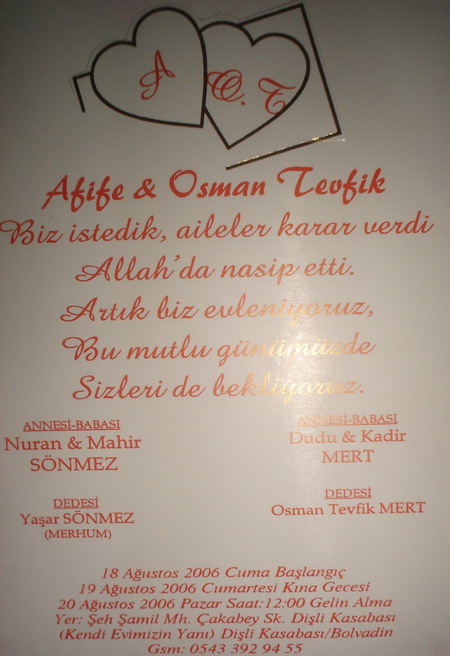 A
O.T
Afife & Osman Tevfik
Biz istedik, aileler karar verdi
Allah'da nasip etti.
Artık biz evleniyoruz,
Bu mutlu günümüzde
Sizleri de bekliyoruz.
ANNESİ-BABASI
Nuran & Mahir
SÖNMEZ
DEDESİ
Yaşar SÖNMEZ
(MERHUM)
ANNESİ-BABASI
Dudu & Kadir
MERT
DEDESİ
Osman Tevfik MERT
18 Ağustos 2006 Cuma Başlangıç
19 Ağustos 2006 Cumartesi Kına Gecesi
20 Ağustos 2006 Pazar Saat:12:00 Gelin Alma
Yer: Şeh Şamil Mh. Çakabey Sk. Dişli Kasabası
(Kendi Evimizin Yanı) Dişli Kasabası/Bolvadin
Gsm: 0543 392 94 55